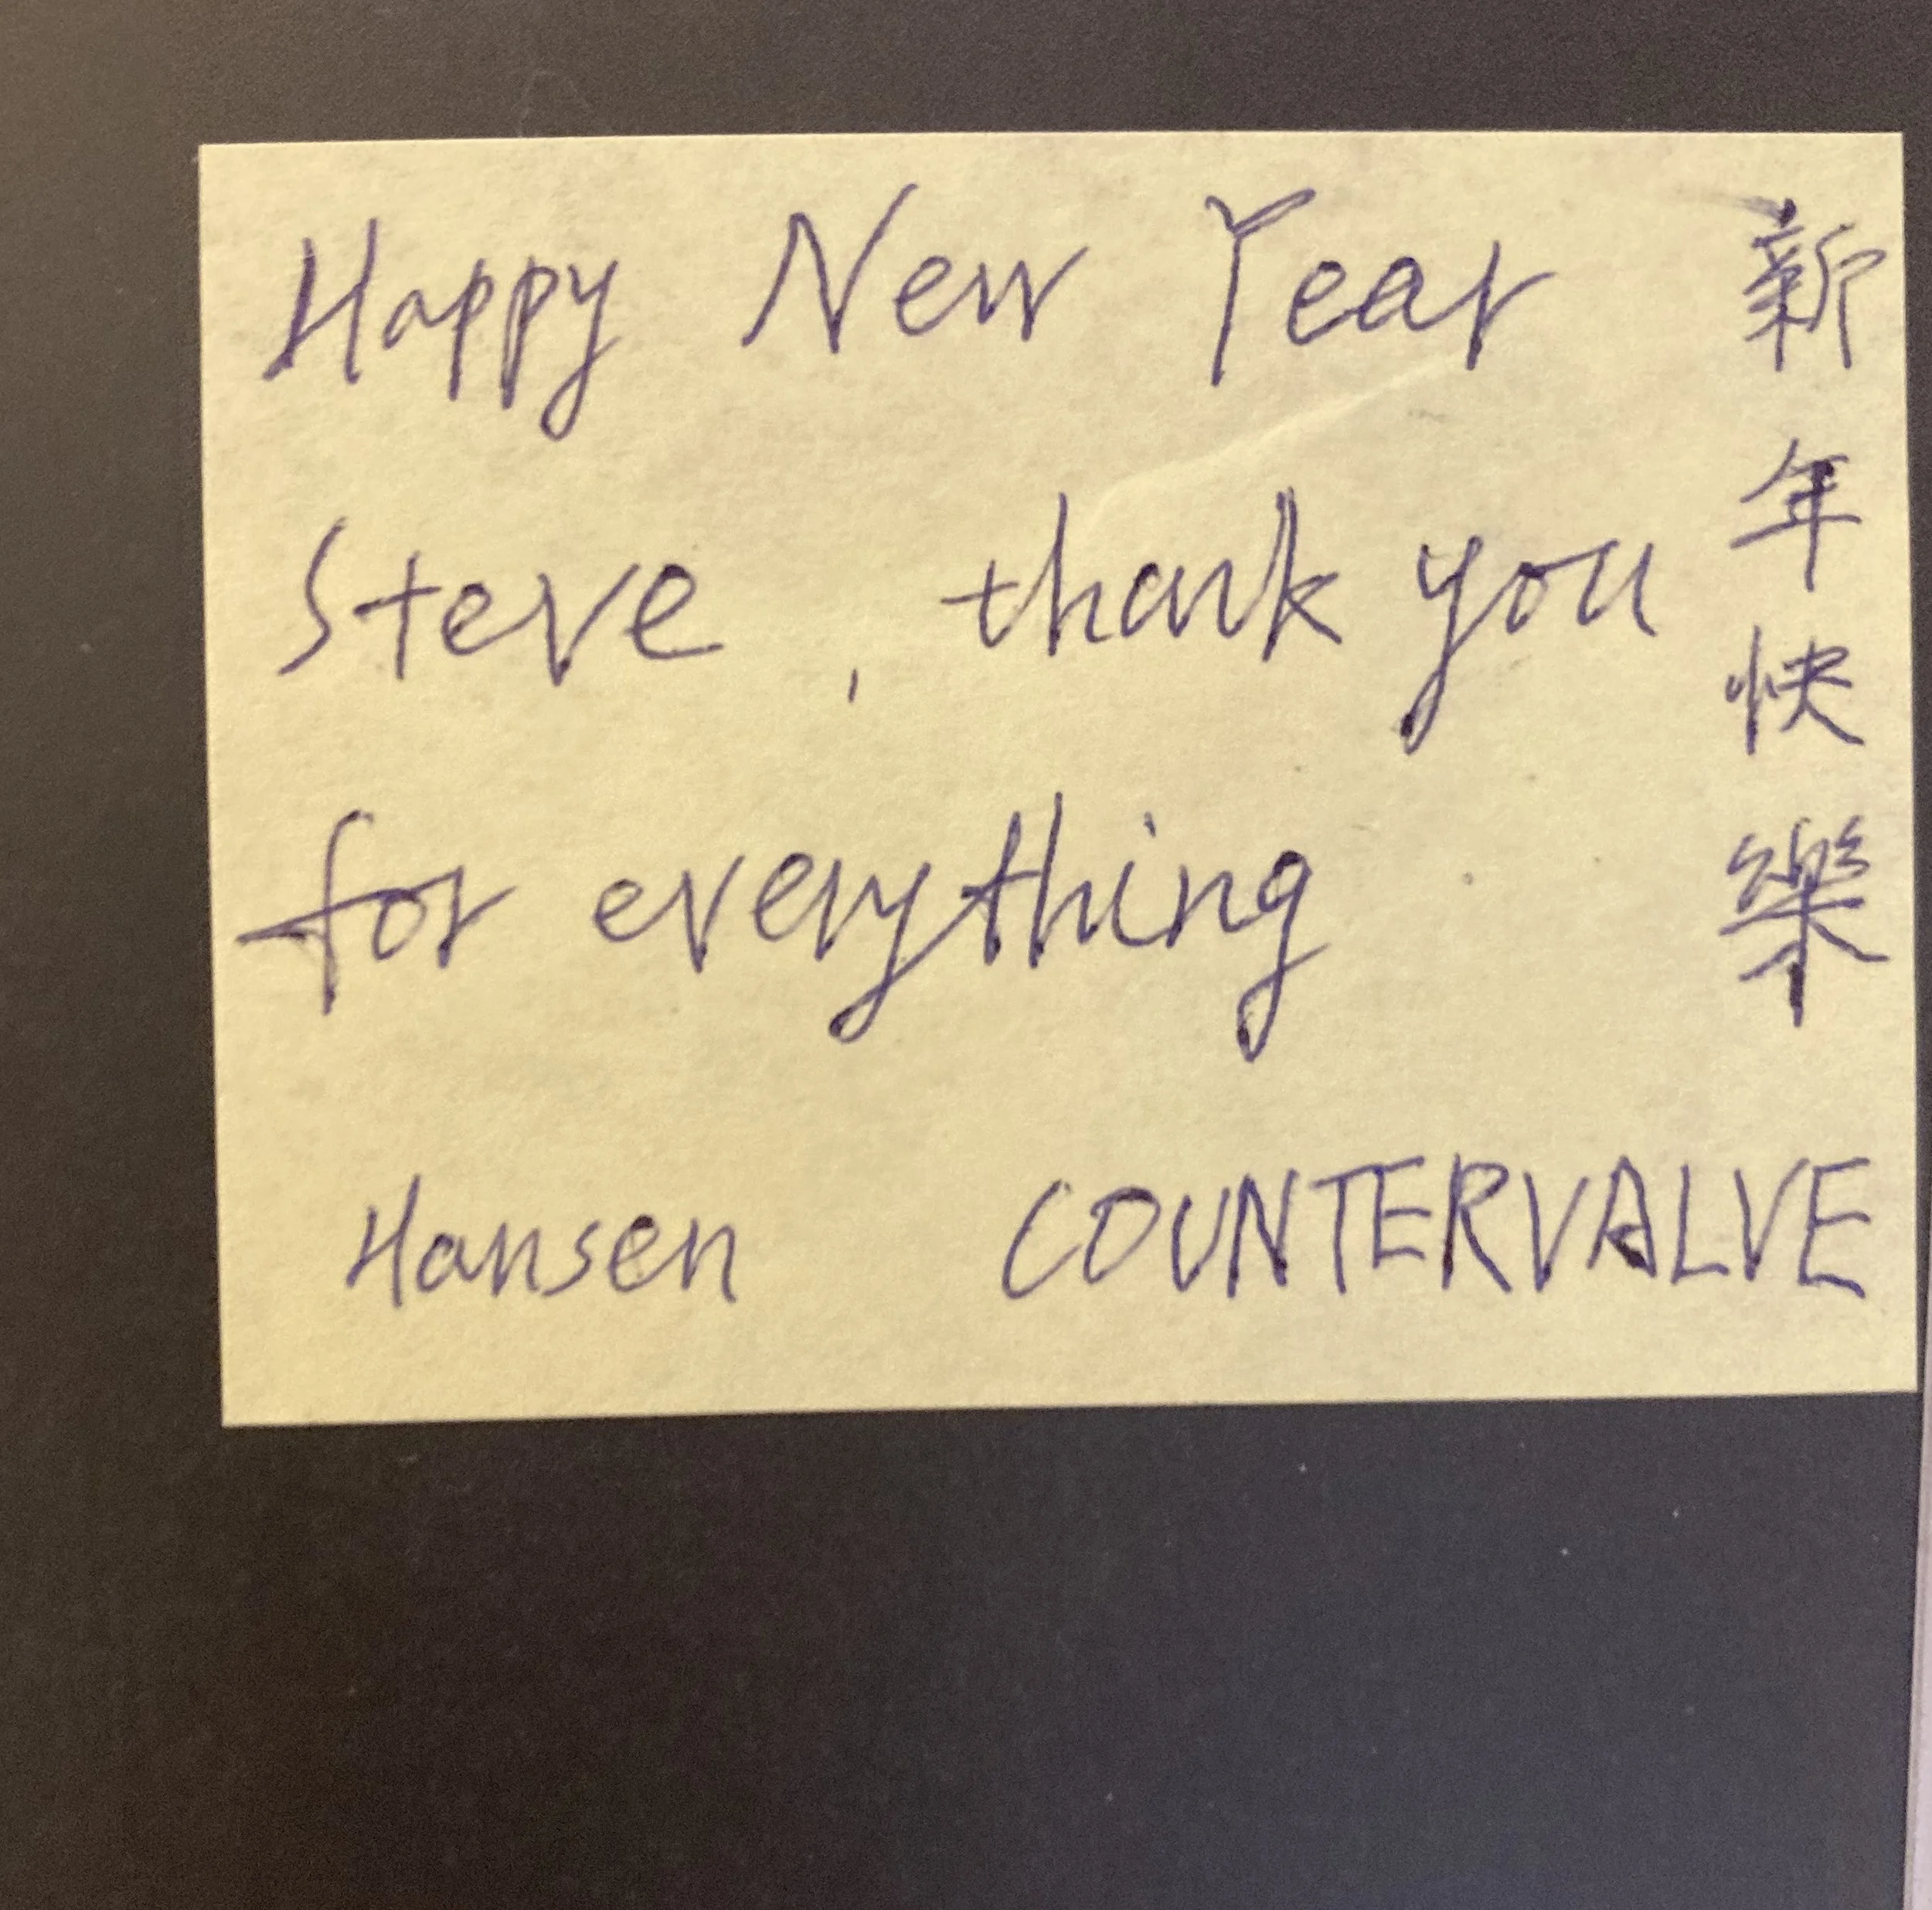 Happy New Year
Steve, thank you
for everything
Hansen COUNTERVALVE
新年快樂